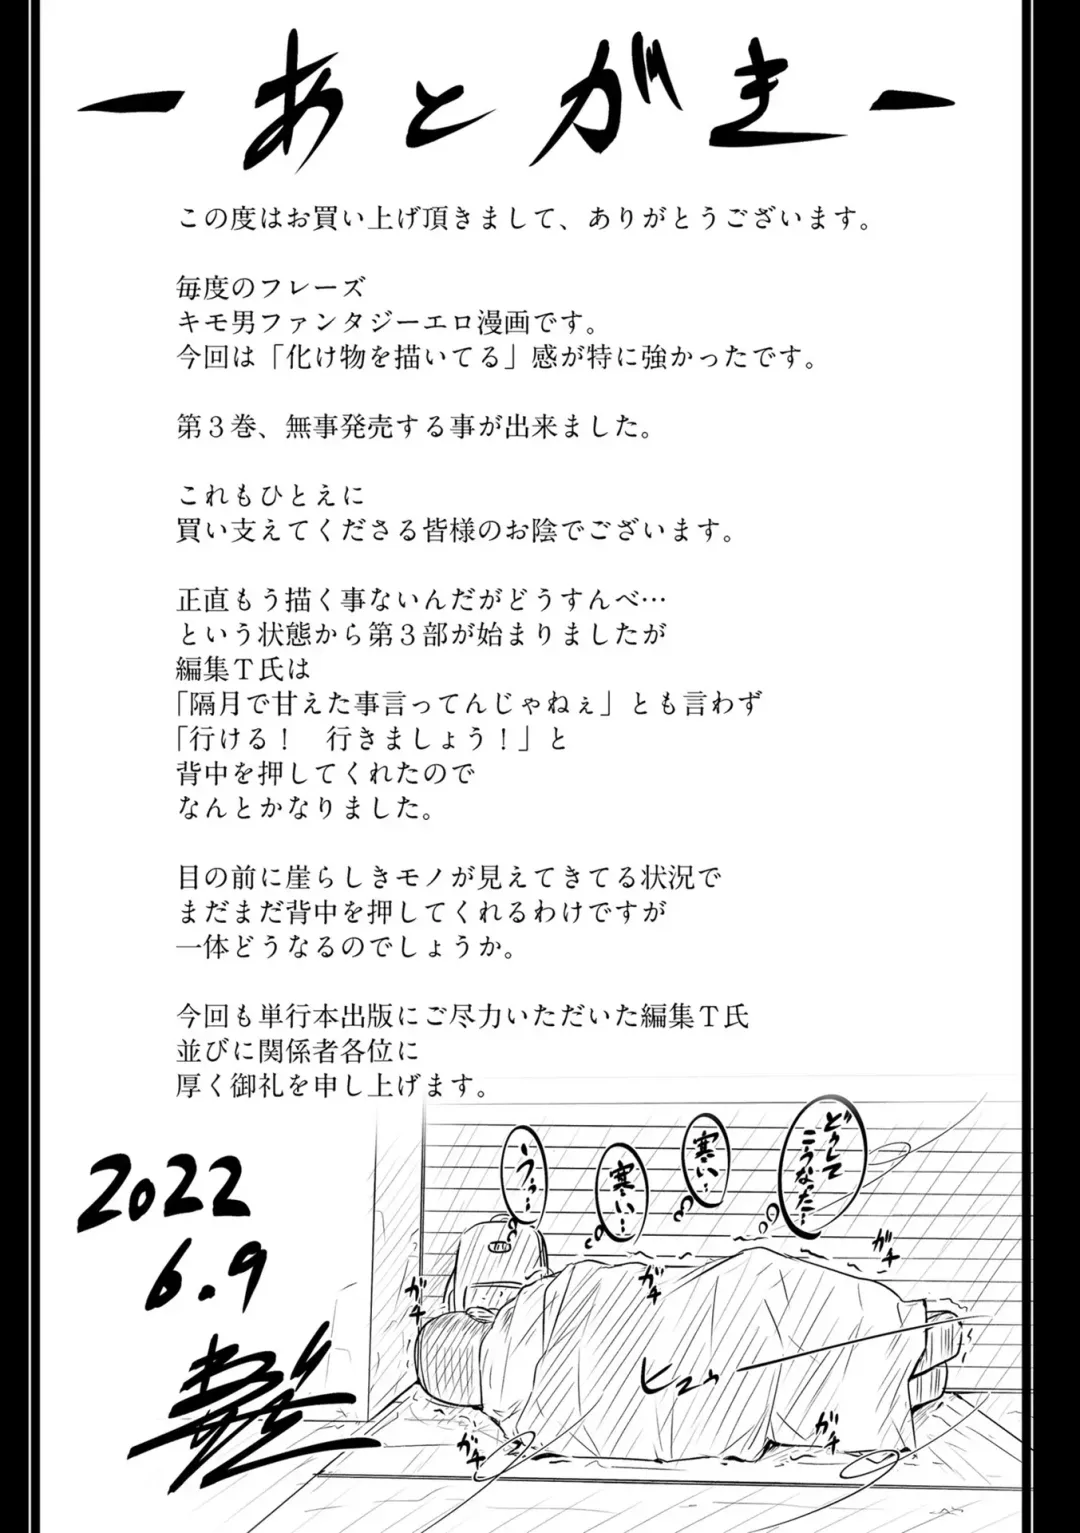 ーあとがきー
この度はお買い上げ頂きまして、ありがとうございます。
毎度のフレーズ
キモ男ファンタジーエロ漫画です。
今回は「化け物を描いてる」感が特に強かったです。
第３巻、無事発売する事が出来ました。
これもひとえに
買い支えてくださる皆様のお陰でございます。
正直もう描く事ないんだがどうすんべ…
という状態から第３部が始まりましたが
編集Ｔ氏は
「隔月で甘えた事言ってんじゃねぇ」とも言わず
「行ける！　行きましょう！」と
背中を押してくれたので
なんとかなりました。
目の前に崖らしきモノが見えてきてる状況で
まだまだ背中を押してくれるわけですが
一体どうなるのでしょうか。
今回も単行本出版にご尽力いただいた編集Ｔ氏
並びに関係者各位に
厚く御礼を申し上げます。
どうして
こうなった…
寒い…
寒い…
うぅ…
ガチ
ガチ
ガチ
ガチ
ガチ
ヒュゥ
2022
6.9